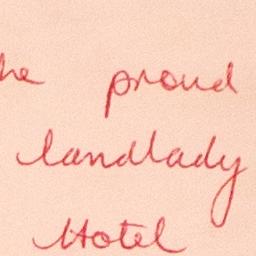 he proud
landlady
Hotel